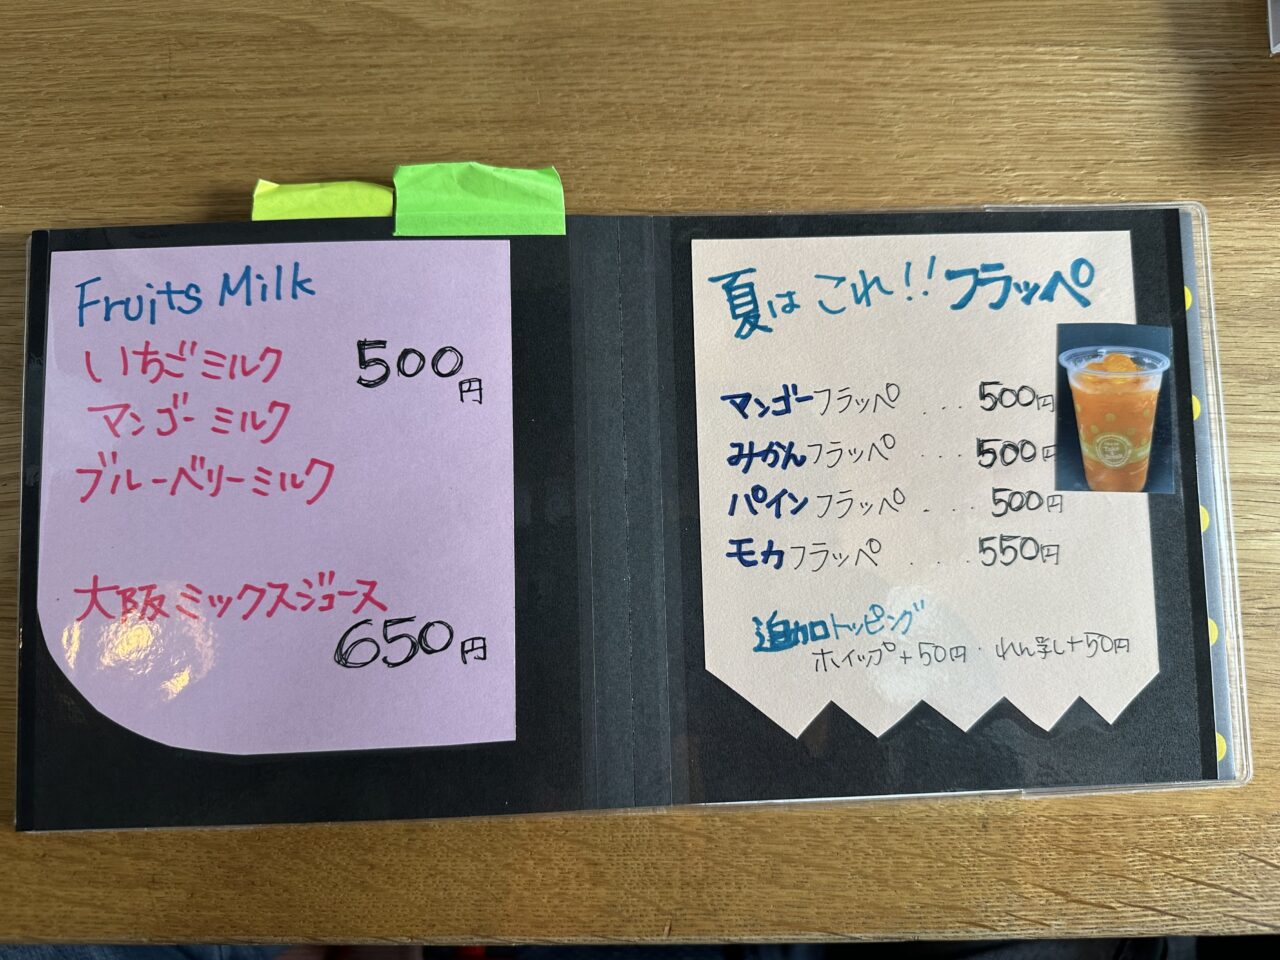 Fruits Milk
いちごミルク 500円
マンゴーミルク
ブルーベリーミルク
大阪ミックスジュース
650円
夏はこれ!!フラッペ
マンゴーフラッペ ... 500円
みかんフラッペ ... 500円
パインフラッペ ... 500円
モカフラッペ ... 550円
追加トッピング
ホイップ+50円・れん乳+50円